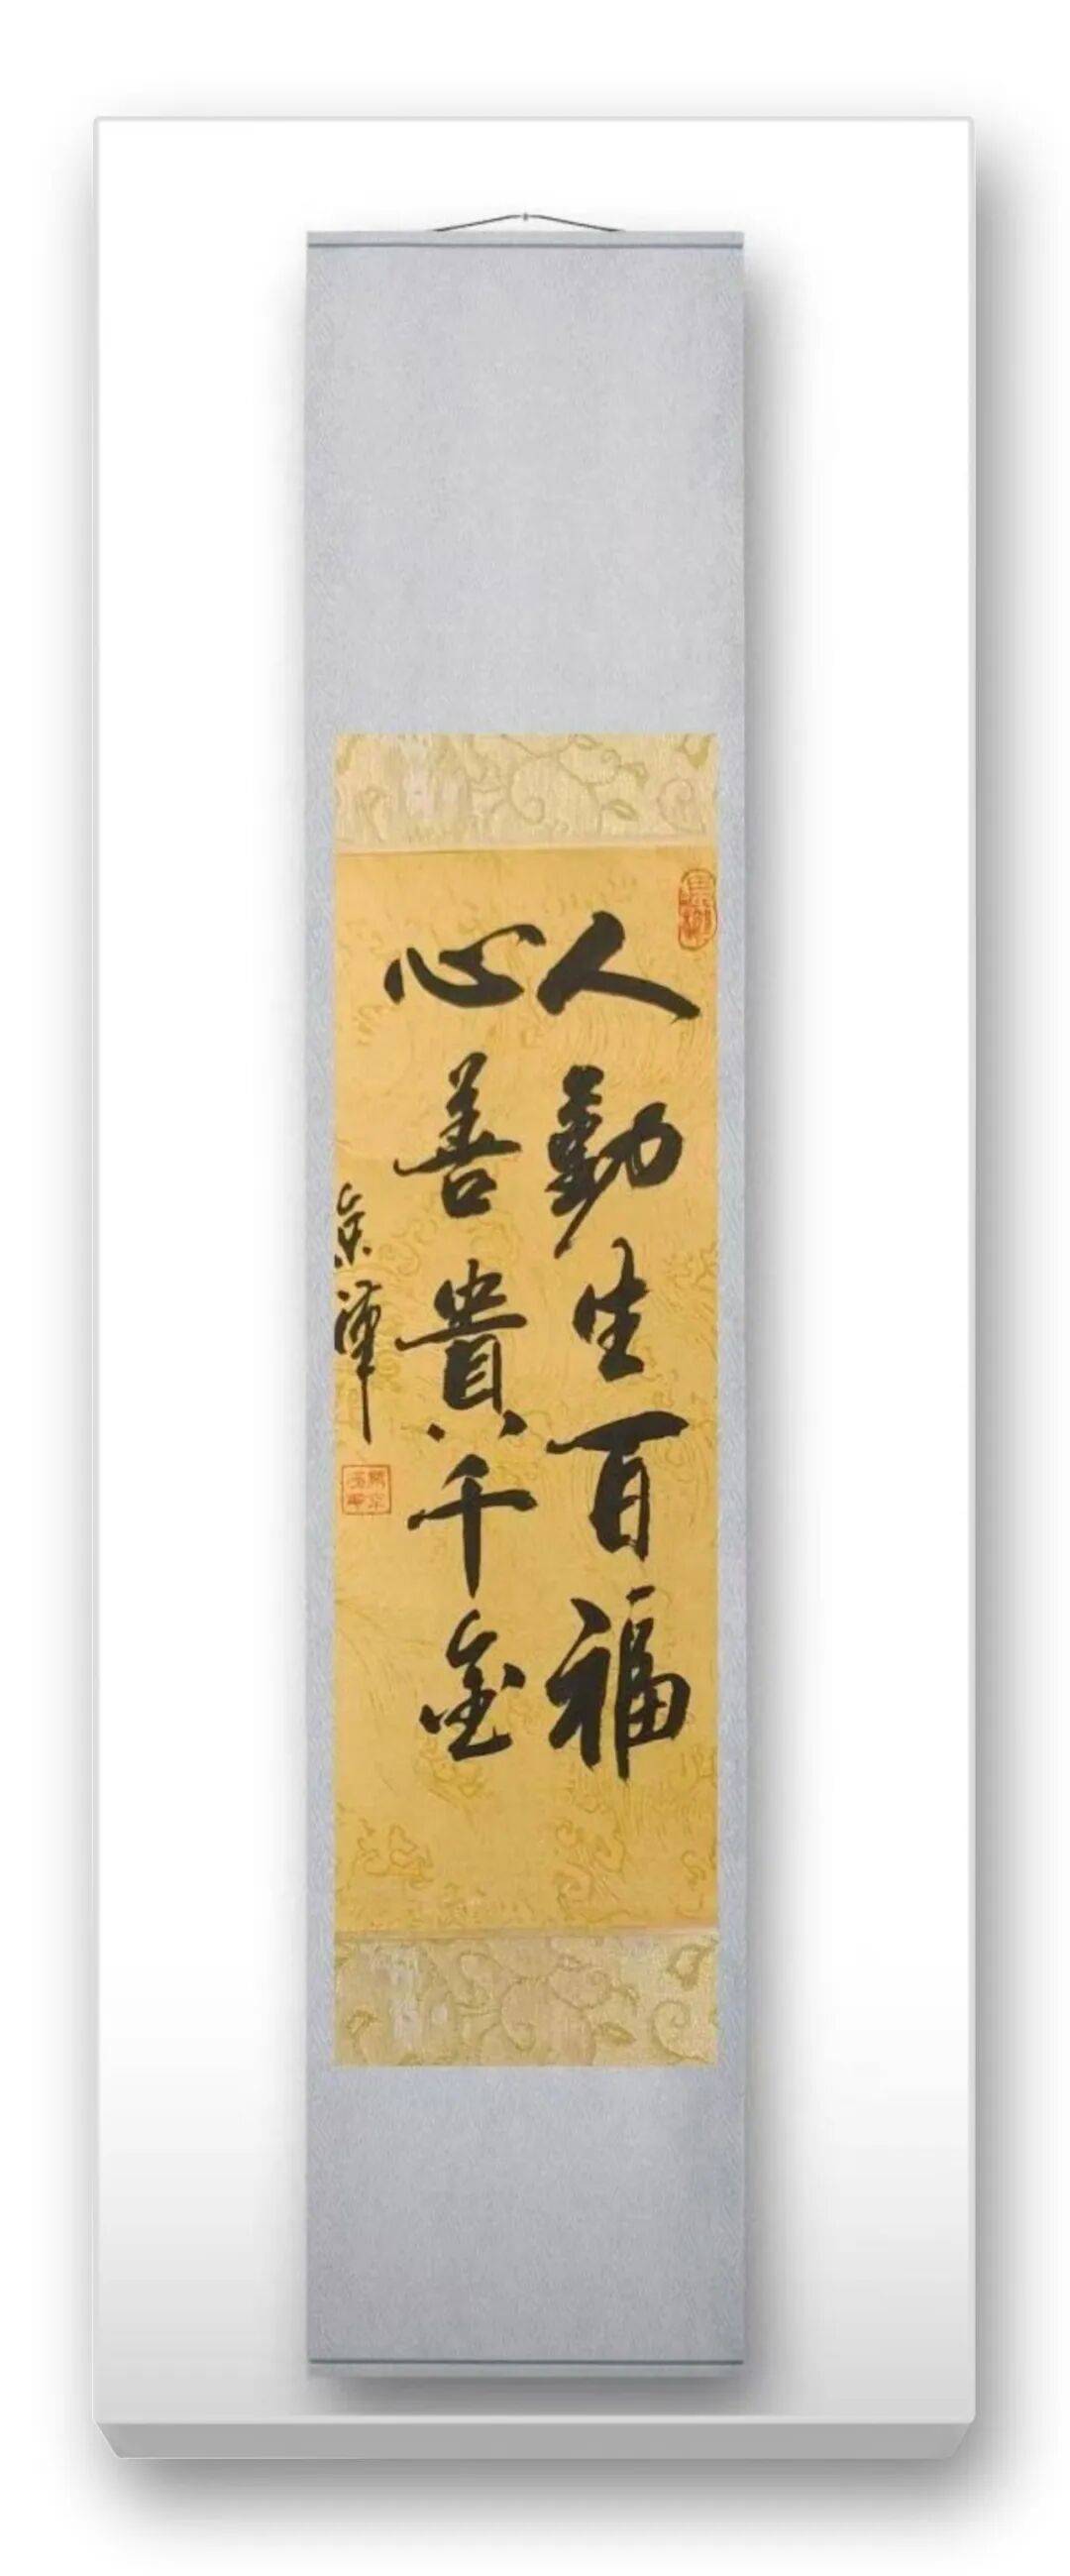 人勤生百福
心善貴千金